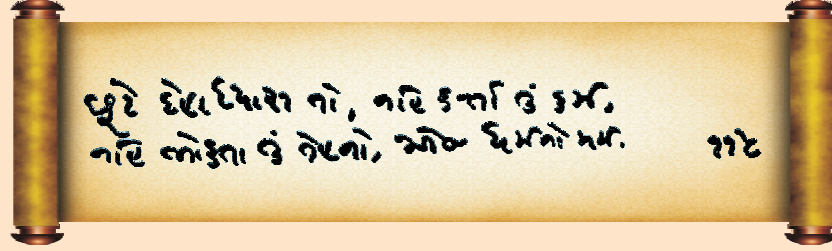 છુટે દેહાધ્યાસ તો, નહિ કર્તા તું કર્મ,
નહિ ભોક્તા તું તેહનો, એજ ધર્મનો મર્મ. ૧૧૫